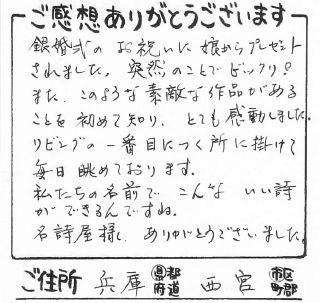 ご感想ありがとうございます
銀婚式の お祝いに 娘からプレゼント
されました。突然のことで ビックリ!
また、このような 素敵な 作品がある
ことを 初めて知り、とても 感動しました。
リビングの 一番目につく所に 掛けて
毎日 眺めております。
私たちの 名前で こんな いい詩
が できるんですね。
名詩屋様、ありがとうございました。
ご住所 兵庫 都道府県 西宮 市区町郡